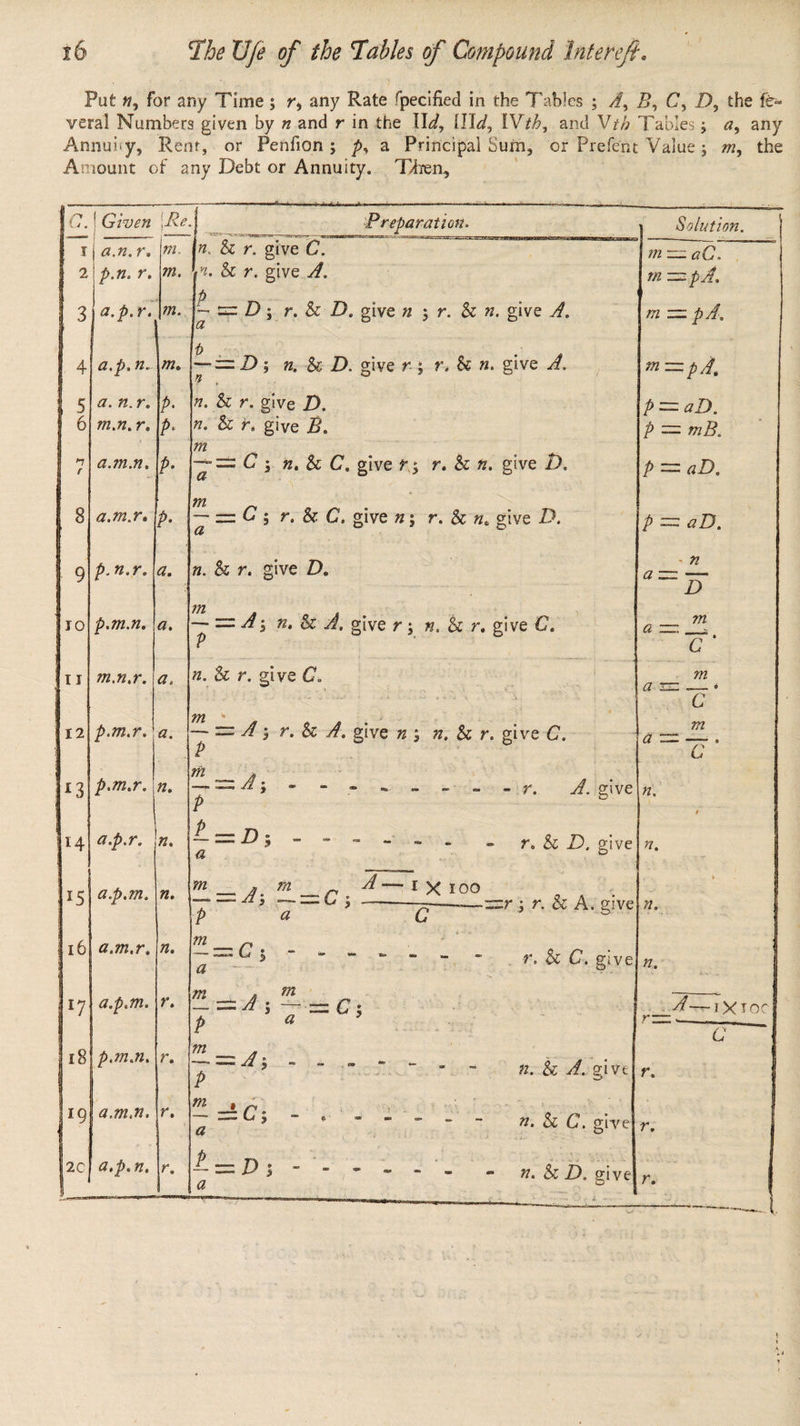 16 The Uſe of the Tables of Compound Intereſt.
Put n, for any Time ; r, any Rate ſpecified in the Tables ; A, B, C, D, the ſe-
veral Numbers given by n and r in the IId, IIId, IVth, and Vth Tables ; a, any
Annuity, Rent, or Penſion ; p, a Principal Sum, or Preſent Value ; m, the
Amount of any Debt or Annuity. Then,
C. Given Re. Preparation. Solution.
1 a.n.r. m. n. & r. give C. m = aC.
2 p.n.r. m. n. & r. give A. m = pA.
3 a.p.r. m. p/a = D ; r. & D. give n ; r. & n. give A. m = pA.
4 a.p.n. m. p/n = D ; n. & D. give r ; r. & n. give A. m = pA.
5 a.n.r. p. n. & r. give D. p = aD.
6 m.n.r. p. n. & r. give B. p = mB.
7 a.m.n. p. m/a = C ; n. & C. give r ; r. & n. give D. p = aD.
8 a.m.r. p. m/a = C ; r. & C. give n ; r. & n. give D. p = aD.
9 p.n.r. a. n. & r. give D. a = n/D
10 p.m.n. a. m/p = A ; n. & A. give r ; n. & r. give C. a = m/C.
11 m.n.r. a. n. & r. give C. a = m/C.
12 p.m.r. a. m/p = A ; r. & A. give n ; n. & r. give C. a = m/C.
13 p.m.r. n. m/p = A ; - - - - - - - - r. A. give n.
14 a.p.r. n. p/a = D ; - - - - - - - r. & D. give n.
15 a.p.m. n. m/p = A ; m/a = C ; A—1 × 100/C = r ; r. & A. give n.
16 a.m.r. n. m/a = C ; - - - - - - - r. & C. give n.
17 a.p.m. r. m/p = A ; m/a = C ; r = A—1×100/C
18 p.m.n. r. m/p = A ; - - - - - - - n. & A. give r.
19 a.m.n. r. m/a = C ; - - - - - - - n. & C. give r.
20 a.p.n. r. p/a = D ; - - - - - - - n. & D. give r.